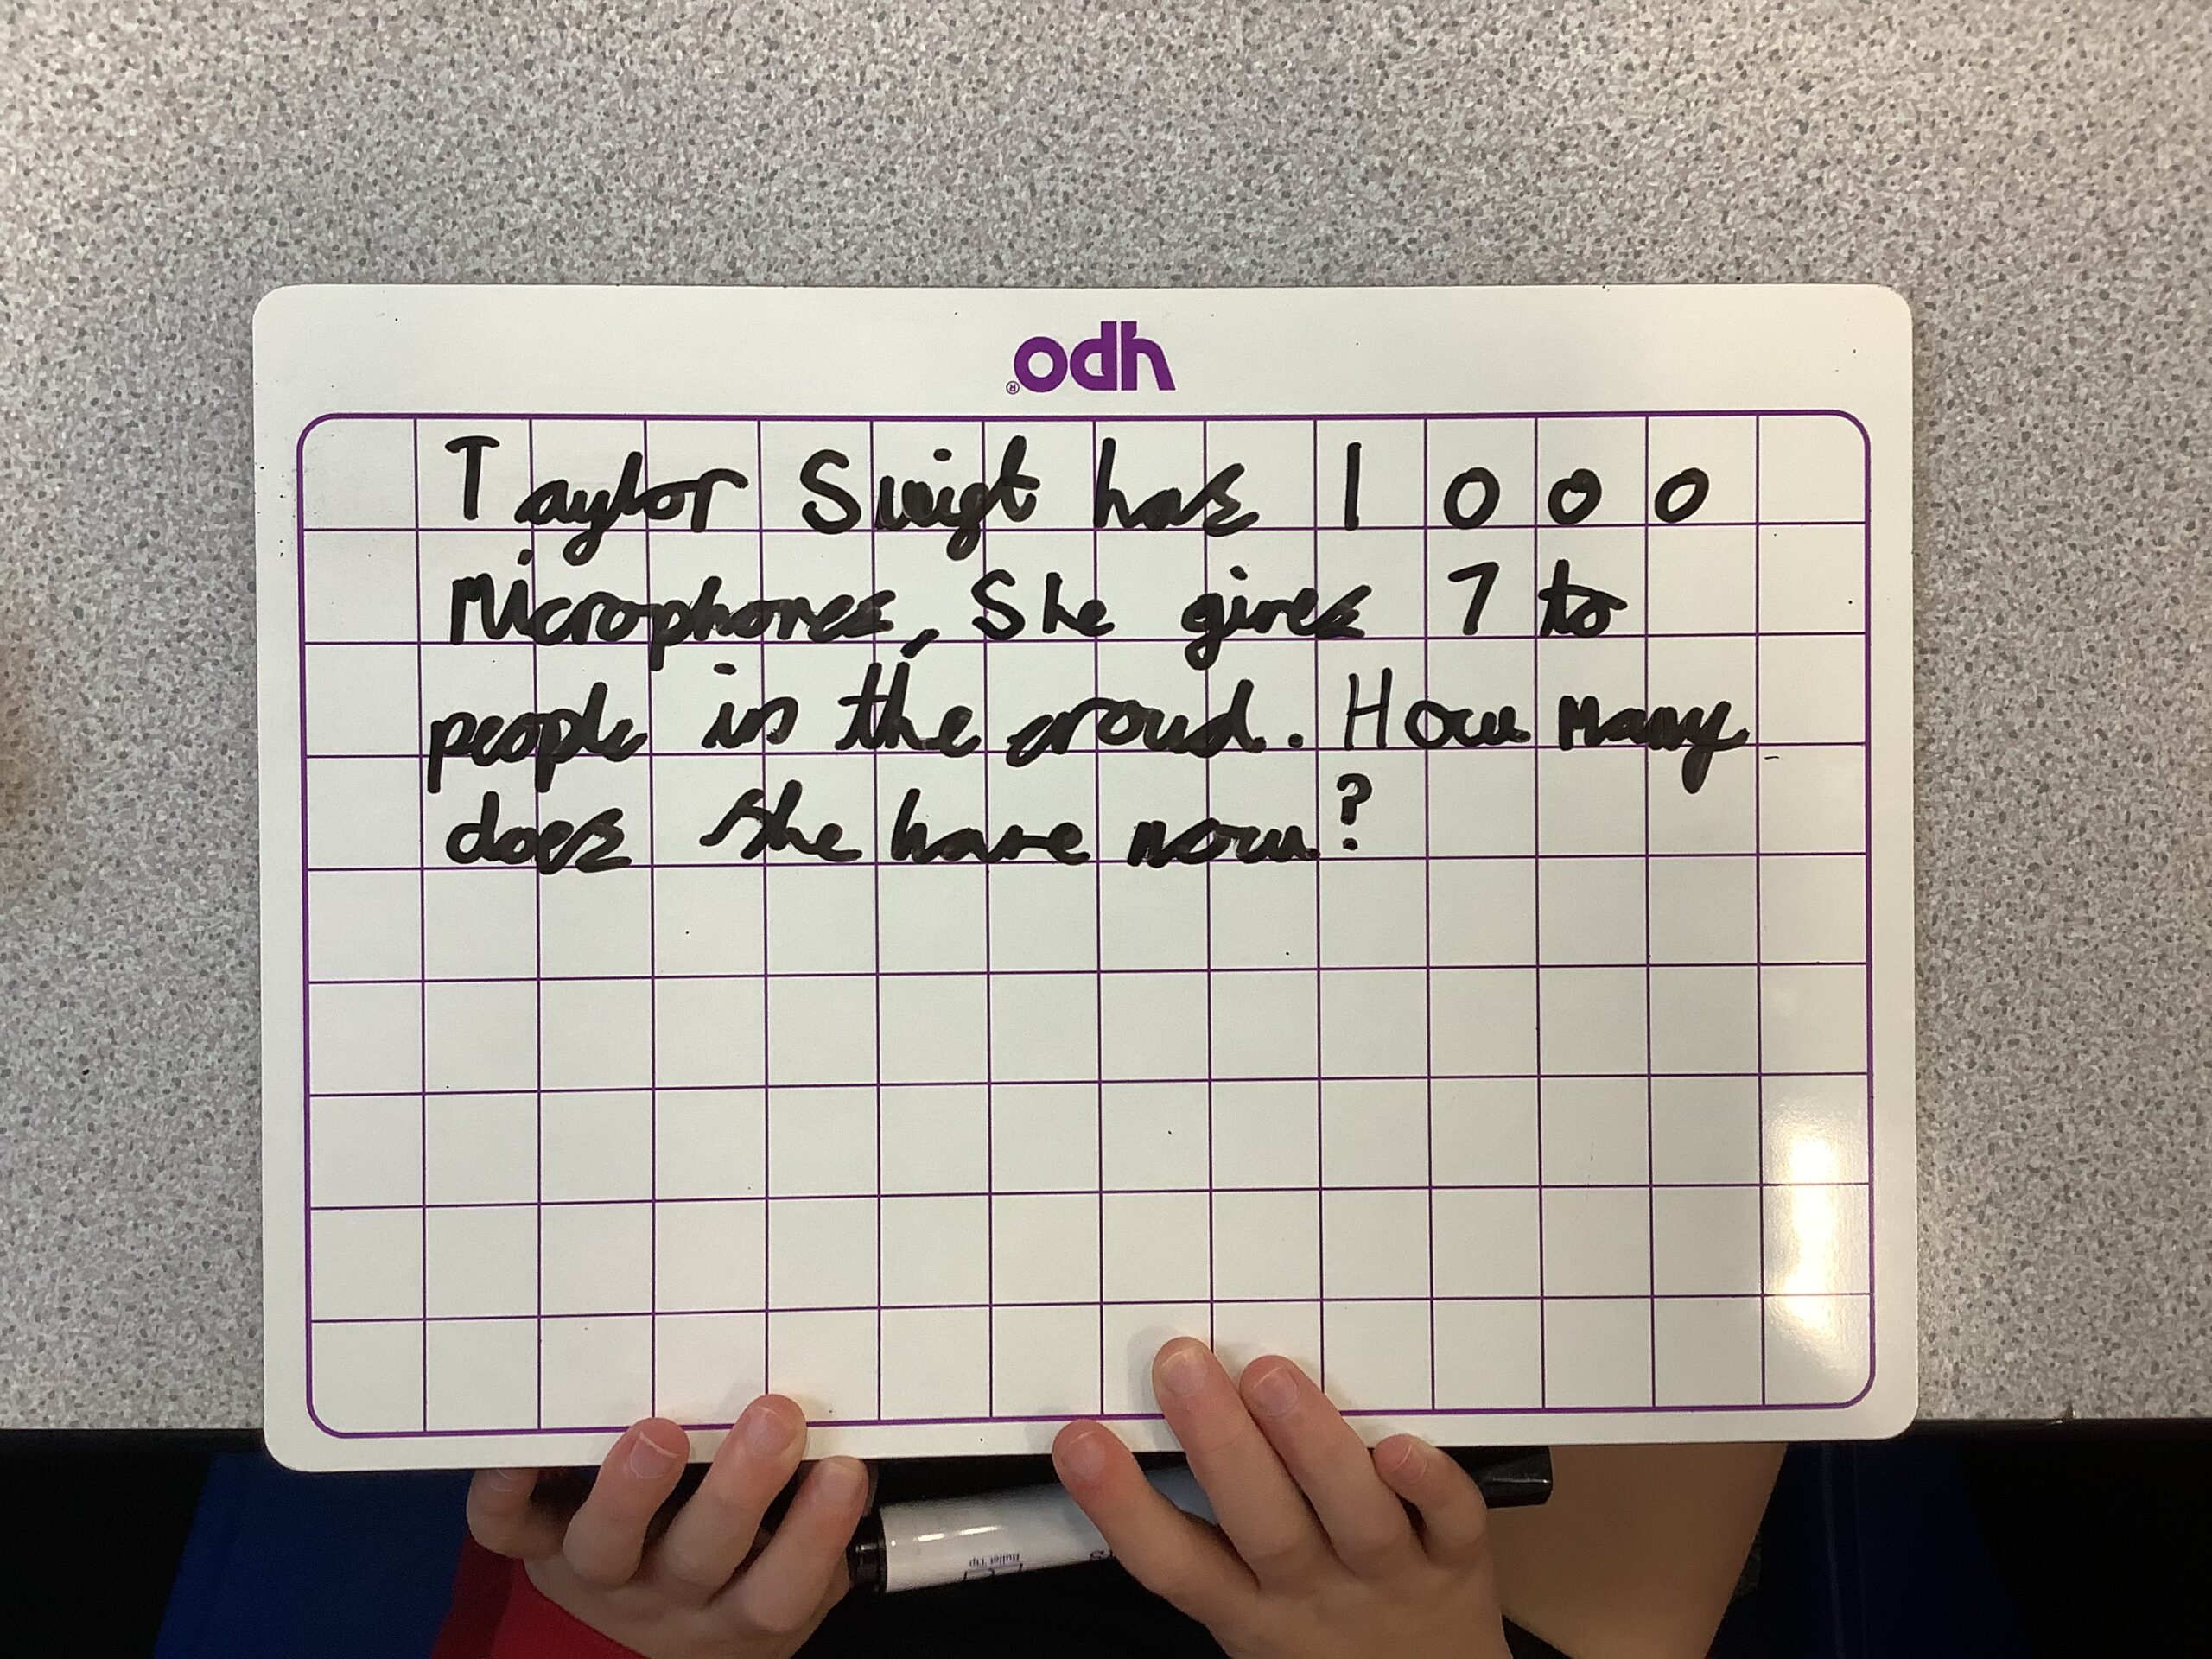 odh
Taylor Swift has 1000
Microphones, She gives 7 to
people in the croud. How many
does she have now?
Bullet Tip